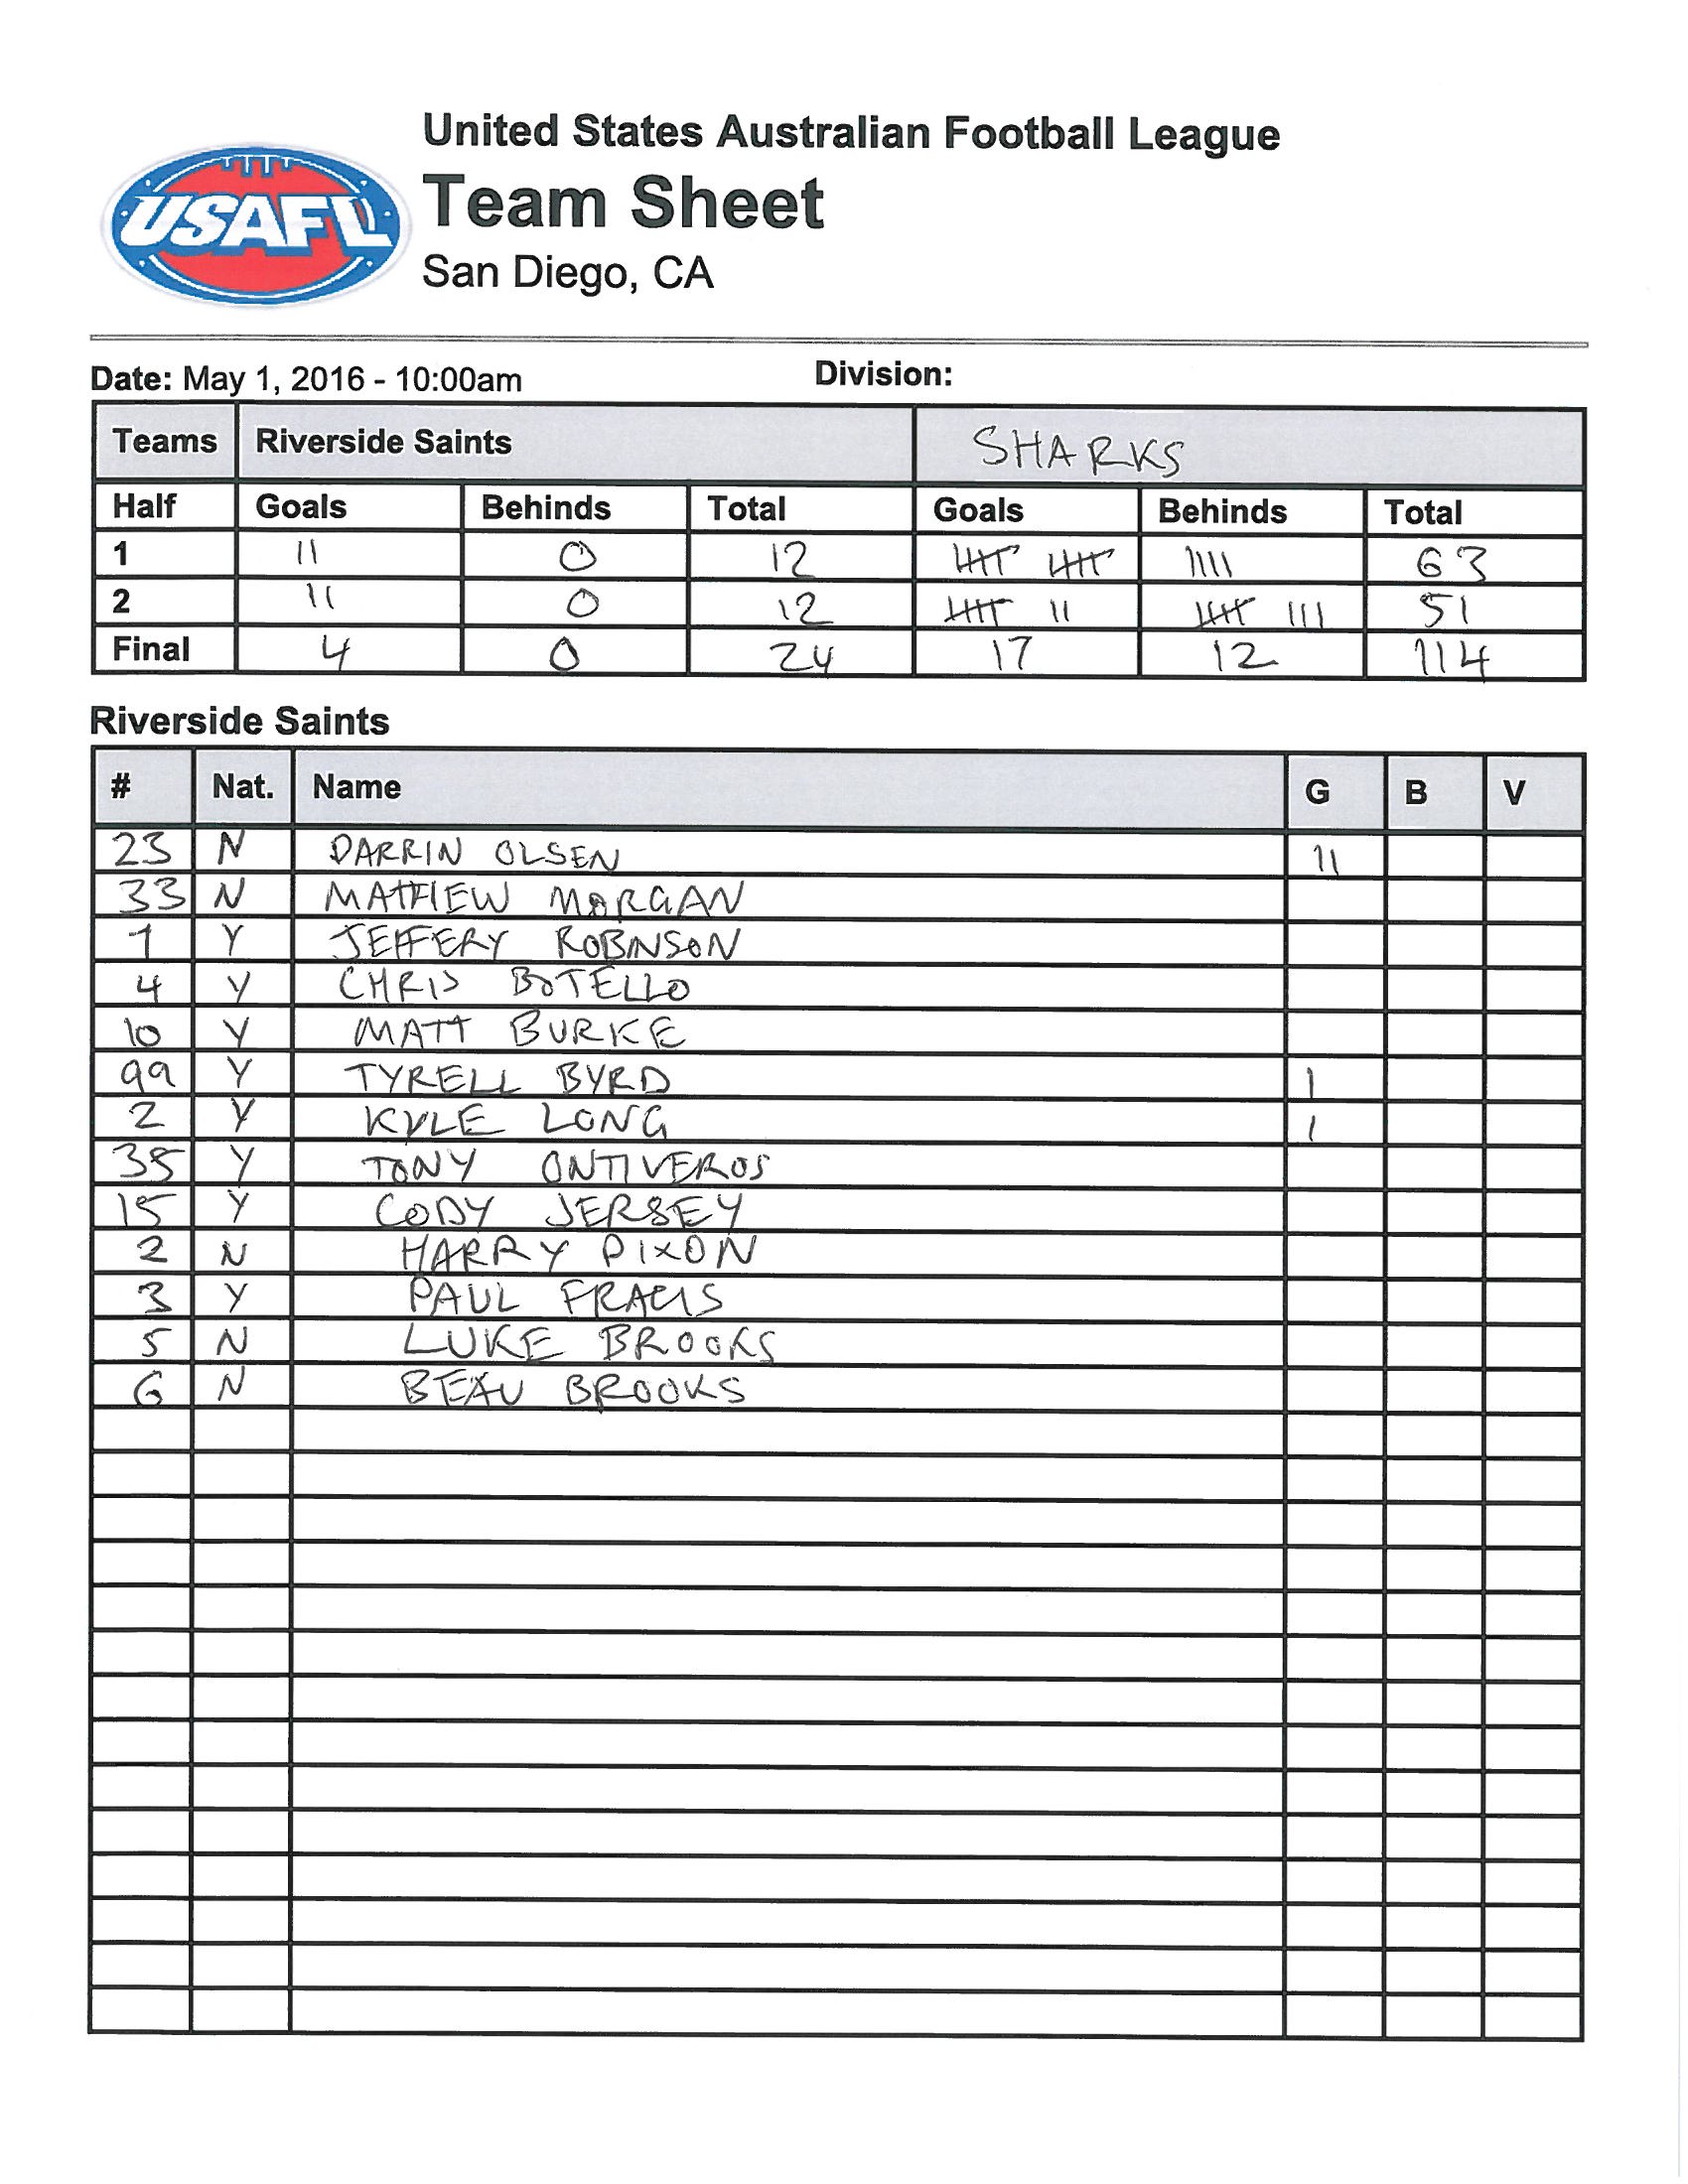 United States Australian Football League
USAFL
Team Sheet
San Diego, CA
Date: May 1, 2016 - 10:00am Division:
Teams Riverside Saints SHARKS
Half Goals Behinds Total Goals Behinds Total
1 11 0 12 𝍸 𝍸 1111 63
2 11 0 12 𝍸 11 𝍸 111 51
Final 4 0 24 17 12 114
Riverside Saints
# Nat. Name G B V
23 N DARRIN OLSEN 11
33 N MATHEW MORGAN
1 Y JEFFERY ROBINSON
4 Y CHRIS BOTELLO
10 Y MATT BURKE
99 Y TYRELL BYRD 1
2 Y KYLE LONG 1
35 Y TONY ONTIVEROS
15 Y CODY JERSEY
2 N HARRY DIXON
3 Y PAUL FRACIS
5 N LUKE BROOKS
6 N BEAU BROOKS